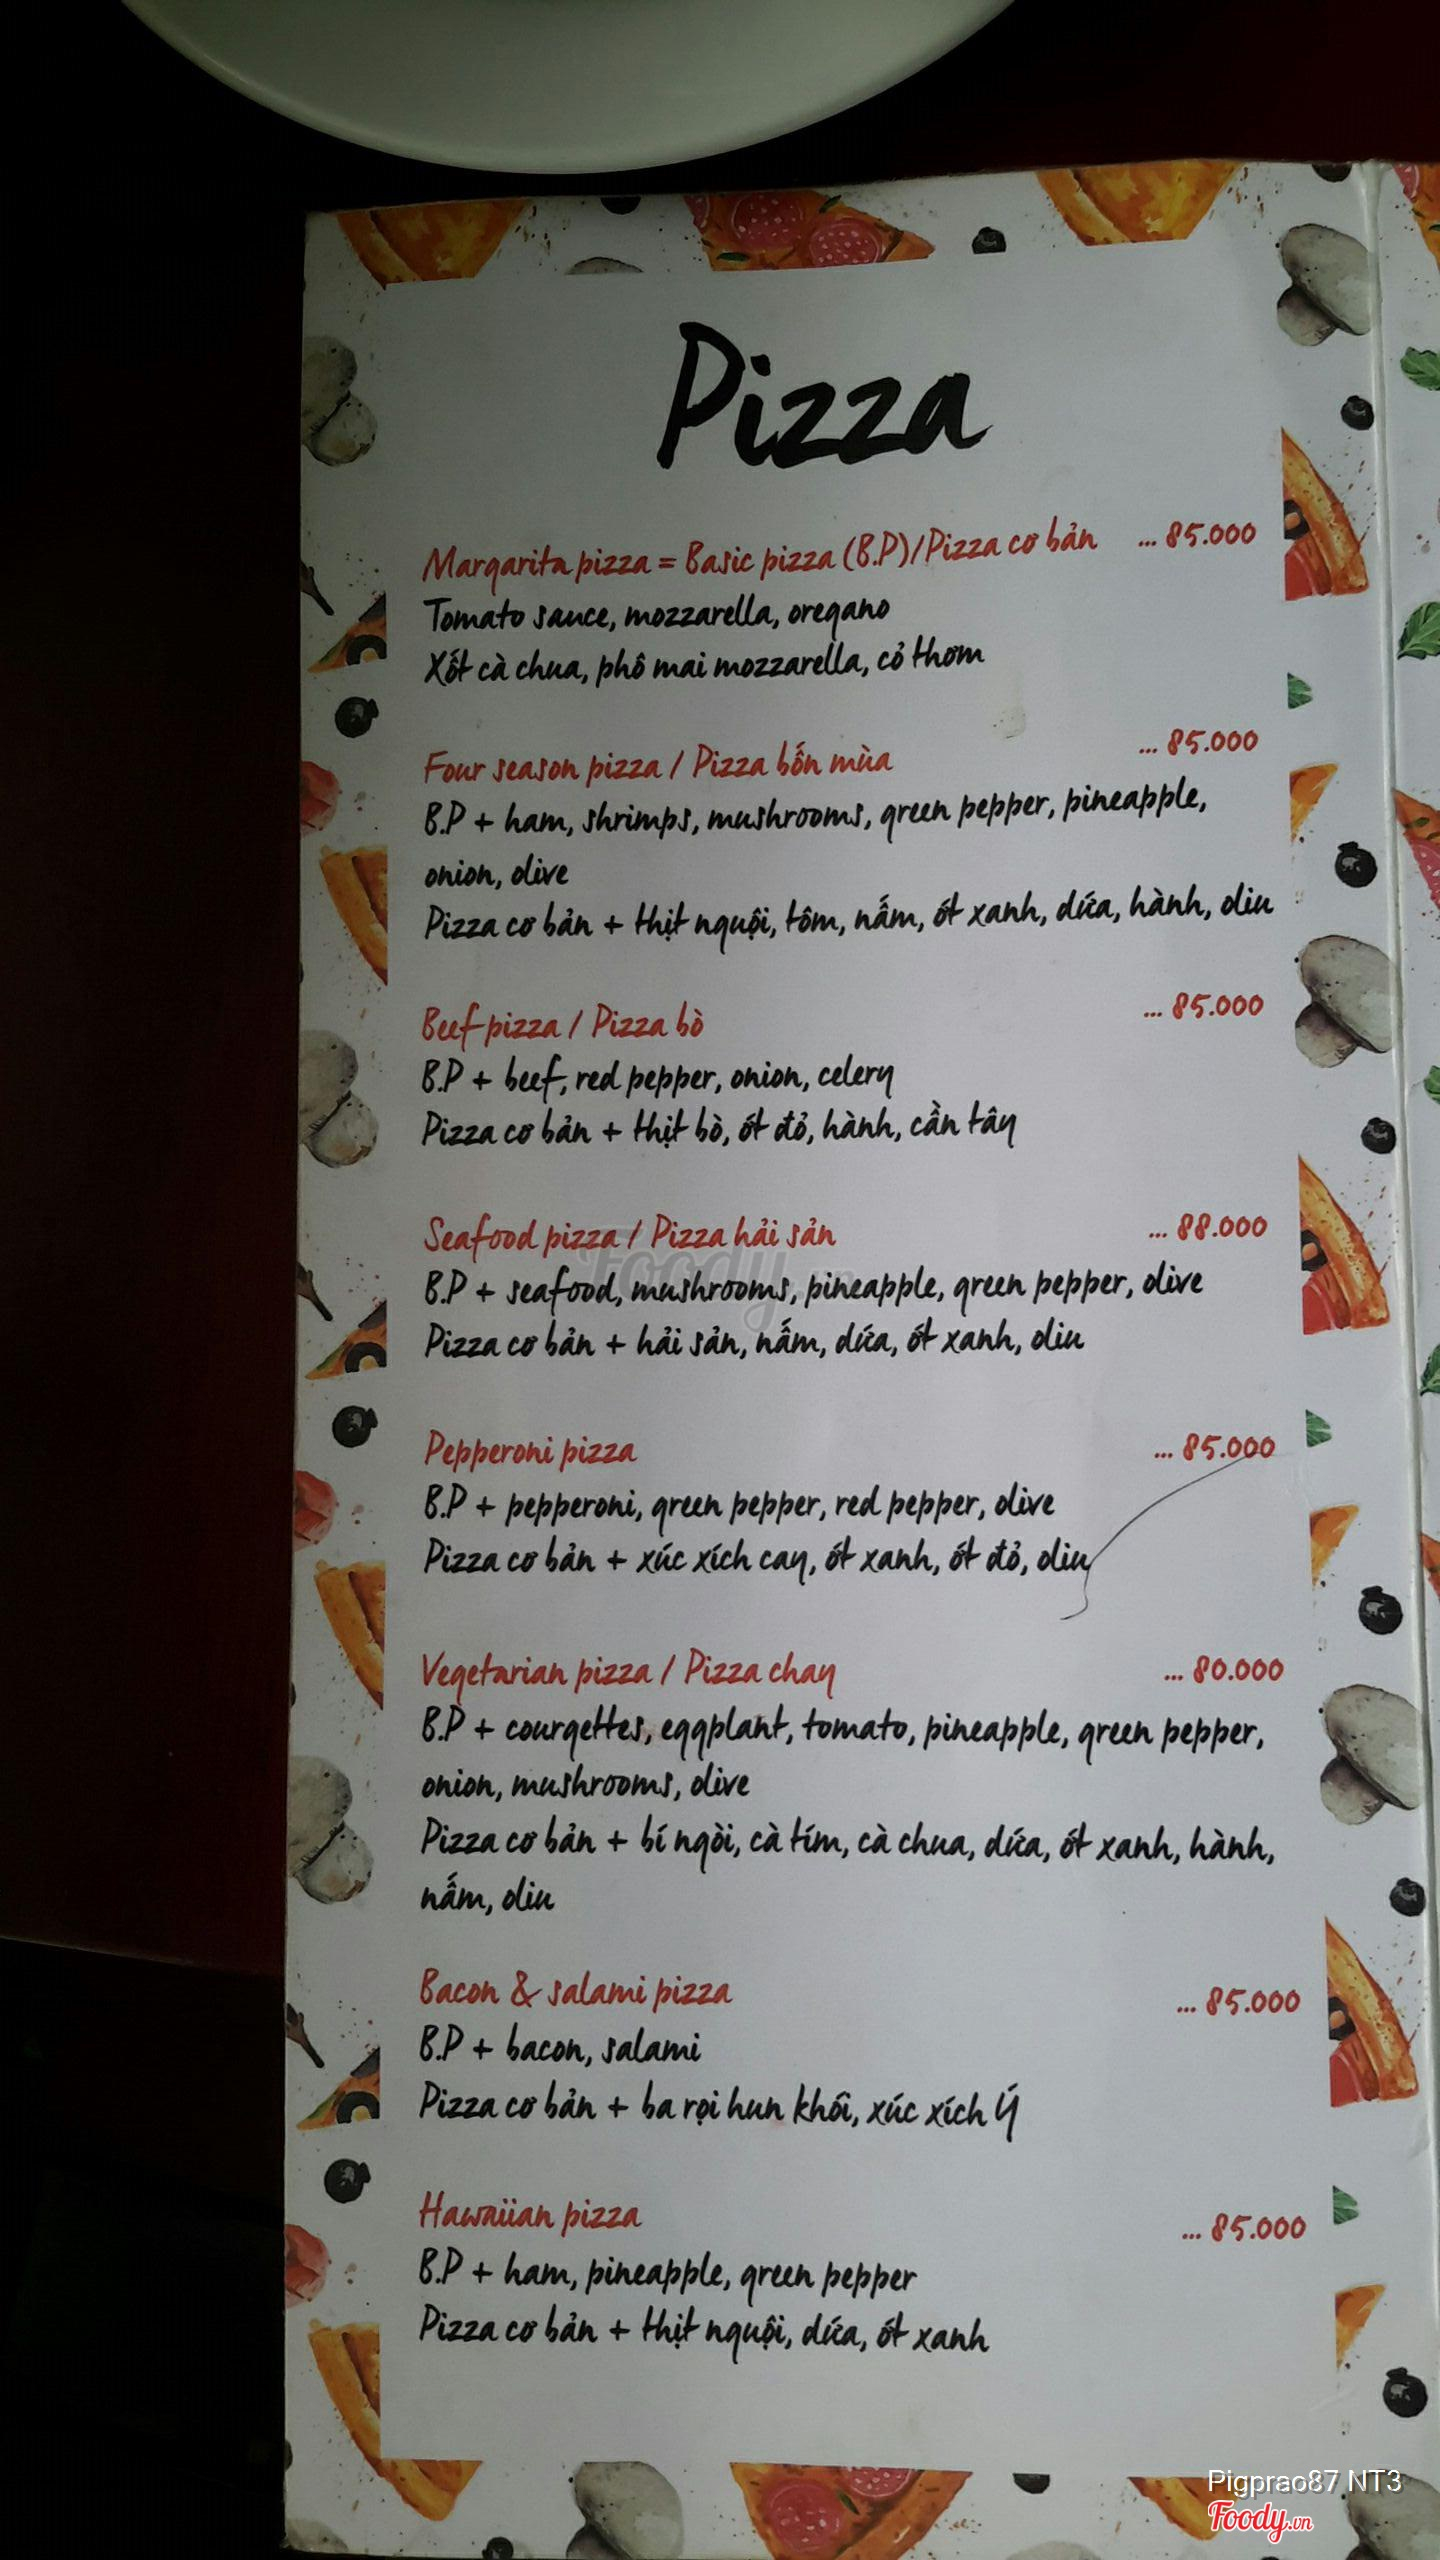 Pizza
Margarita pizza = Basic pizza (B.P)/Pizza cơ bản ... 85.000
Tomato sauce, mozzarella, oregano
Xốt cà chua, phô mai mozzarella, cỏ thơm
Four season pizza / Pizza bốn mùa ... 85.000
B.P + ham, shrimps, mushrooms, green pepper, pineapple,
onion, olive
Pizza cơ bản + thịt nguội, tôm, nấm, ớt xanh, dứa, hành, oliu
Beef pizza / Pizza bò ... 85.000
B.P + beef, red pepper, onion, celery
Pizza cơ bản + thịt bò, ớt đỏ, hành, cần tây
Seafood pizza / Pizza hải sản ... 88.000
B.P + seafood, mushrooms, pineapple, green pepper, olive
Pizza cơ bản + hải sản, nấm, dứa, ớt xanh, oliu
Pepperoni pizza ... 85.000
B.P + pepperoni, green pepper, red pepper, olive
Pizza cơ bản + xúc xích cay, ớt xanh, ớt đỏ, oliu
Vegetarian pizza / Pizza chay ... 80.000
B.P + courgettes, eggplant, tomato, pineapple, green pepper,
onion, mushrooms, olive
Pizza cơ bản + bí ngòi, cà tím, cà chua, dứa, ớt xanh, hành,
nấm, oliu
Bacon & salami pizza ... 85.000
B.P + bacon, salami
Pizza cơ bản + ba rọi hun khói, xúc xích Ý
Hawaiian pizza ... 85.000
B.P + ham, pineapple, green pepper
Pizza cơ bản + thịt nguội, dứa, ớt xanh
Foody.vn
Pigprao87 NT3
Foody.vn